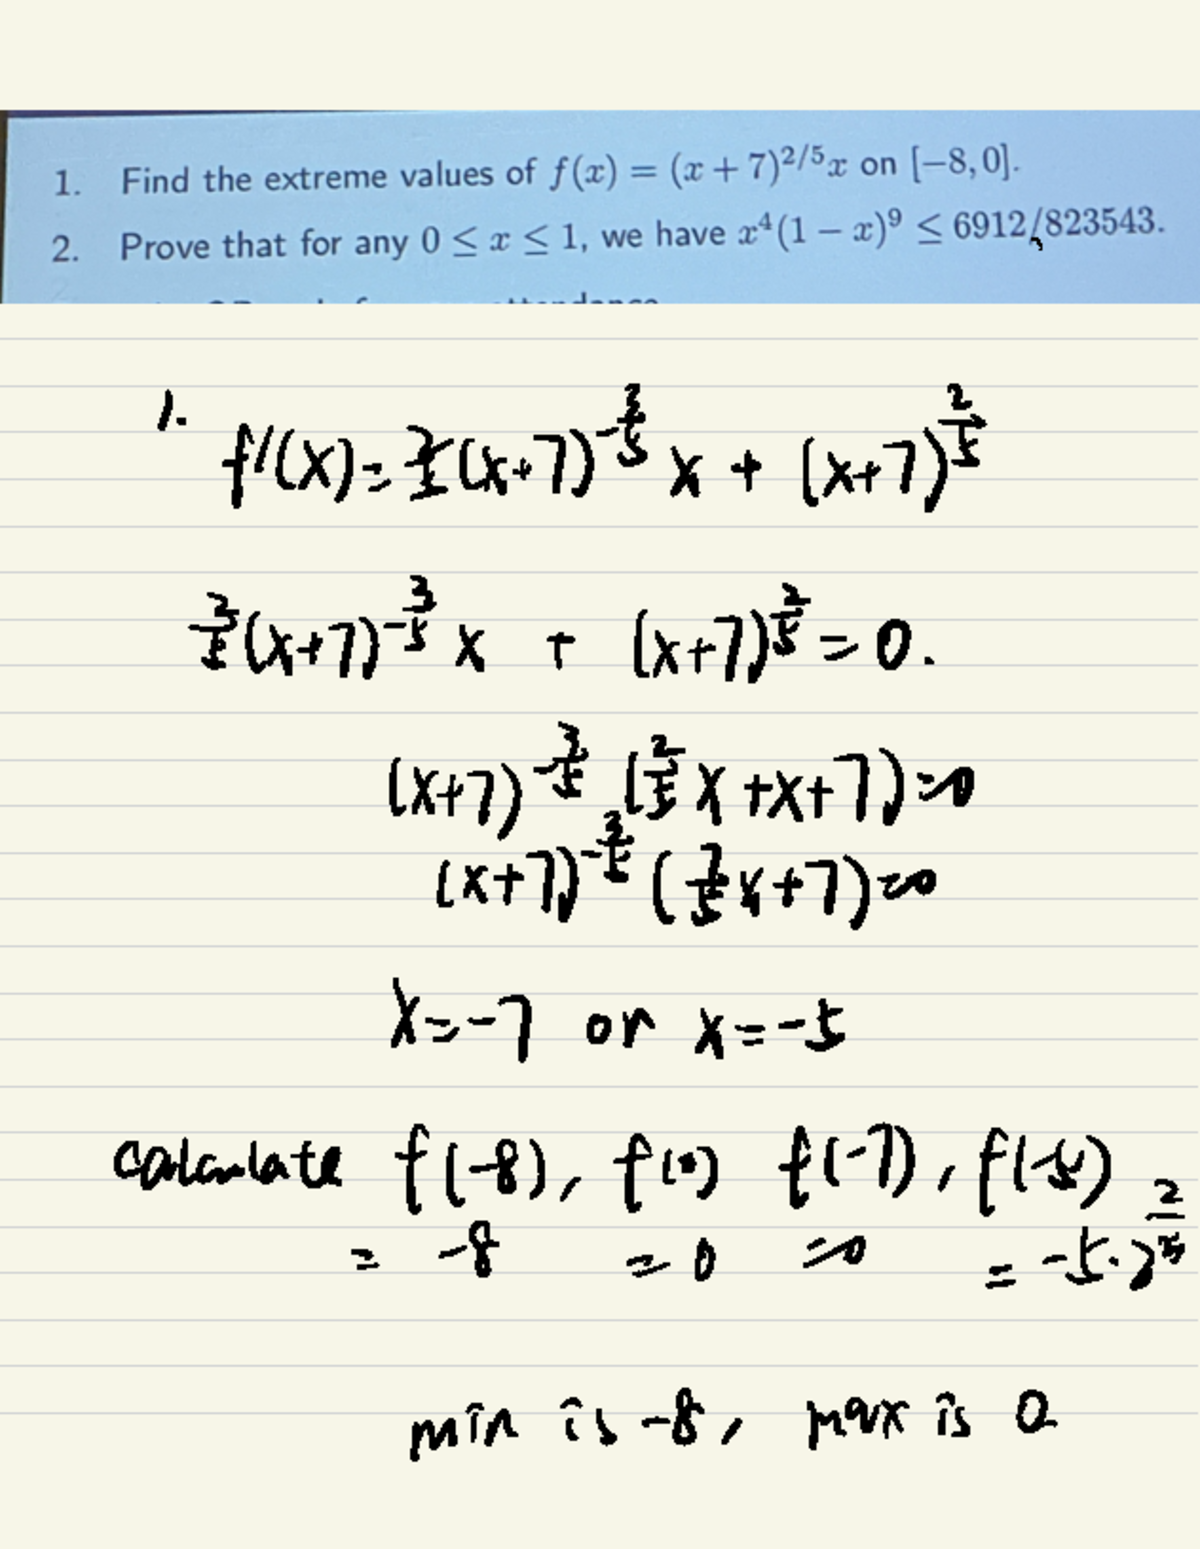 1. Find the extreme values of f(x) = (x + 7)^{2/5}x on [−8, 0].
2. Prove that for any 0 ≤ x ≤ 1, we have x^4(1 − x)^9 ≤ 6912/823543.
1.
f'(x) = 2/5(x+7)^{-3/5} x + (x+7)^{2/5}
2/5(x+7)^{-3/5} x + (x+7)^{2/5} = 0.
(x+7)^{-3/5} (2/5 x + x + 7) = 0
(x+7)^{-3/5} (7/5 x + 7) = 0
x = -7 or x = -5
calculate f(-8), f(0) f(-7), f(-5)
= -8 = 0 = 0 = -5·2^{2/5}
min is -8, max is 0